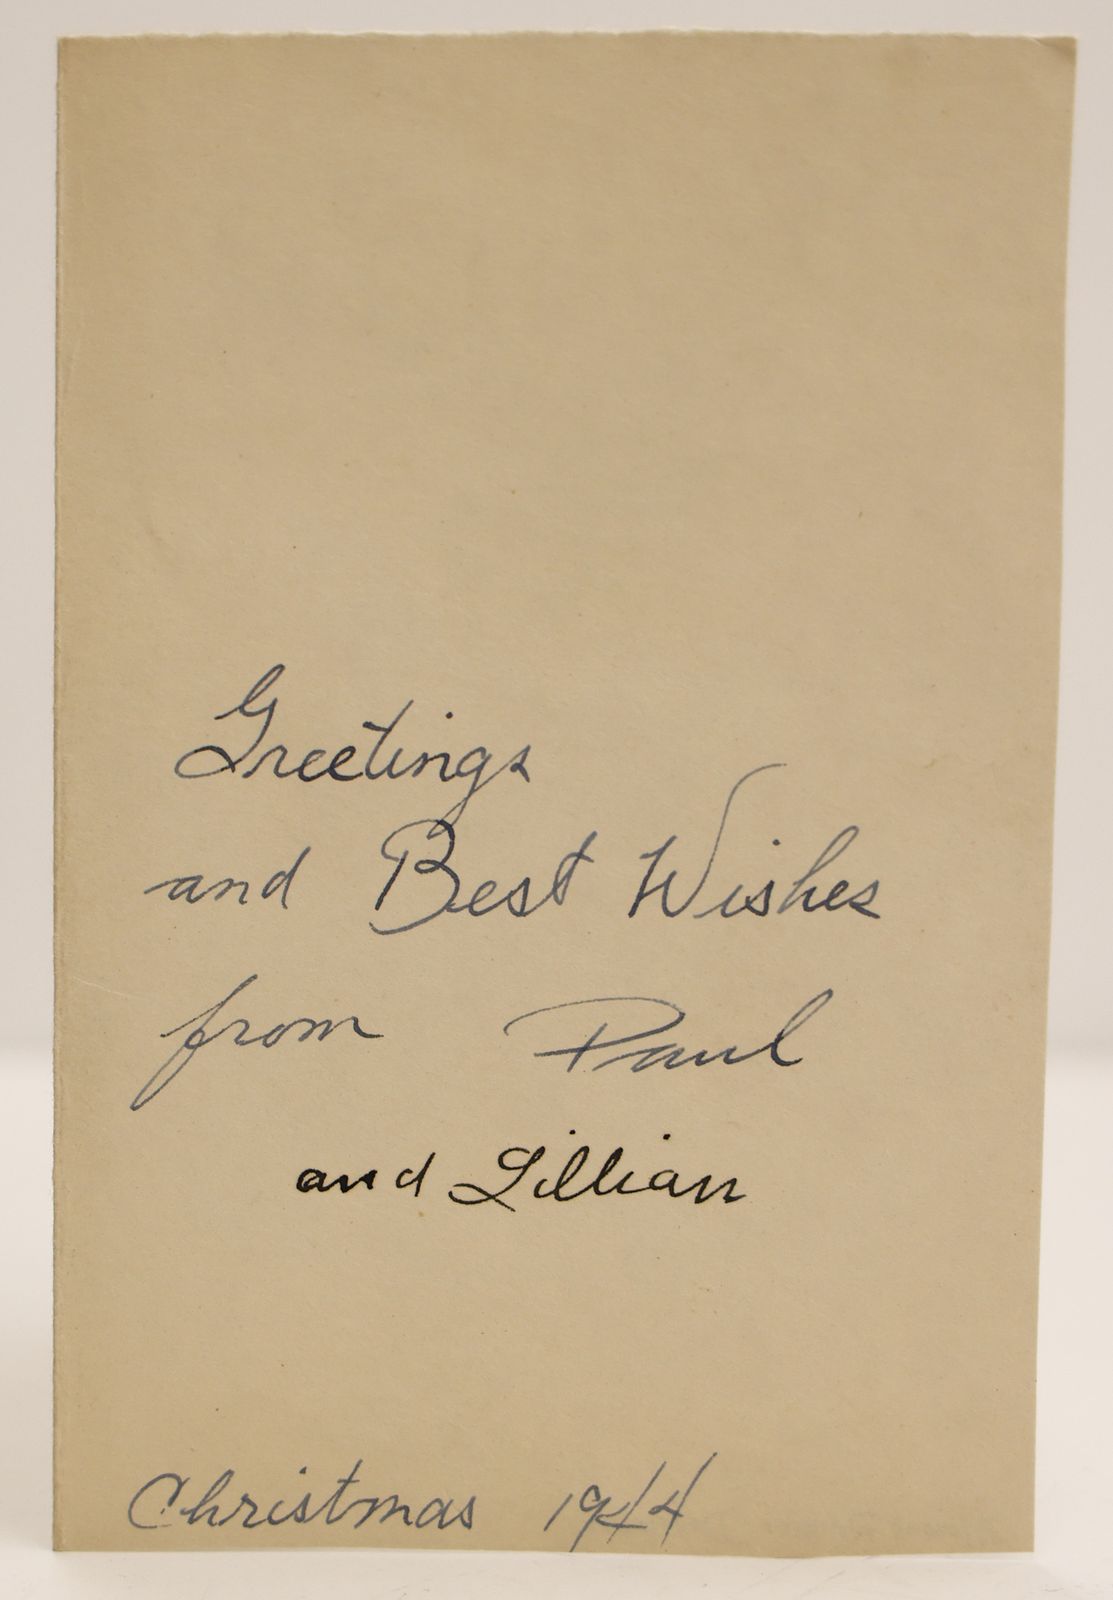 Greetings
and Best Wishes
from Paul
and Lillian
Christmas 1944